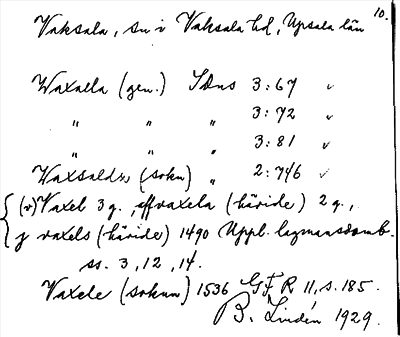 10.
Vaksala, sn i Vaksala hd, Upsala län
Waxalla (gen.) SDns 3:67 ✓
" " " 3:72 ✓
" " " 3:81 ✓
(sokn) " 2:746 ✓
(v) Vaxel 3 g., vaxela (häride) 2 g.,
j vaxels (häride) 1490 Uppl. lagmansdomb.
ss. 3, 12, 14.
Vaxele (soknn) 1536 G F R 11, s. 185.
B. Lindén 1929.